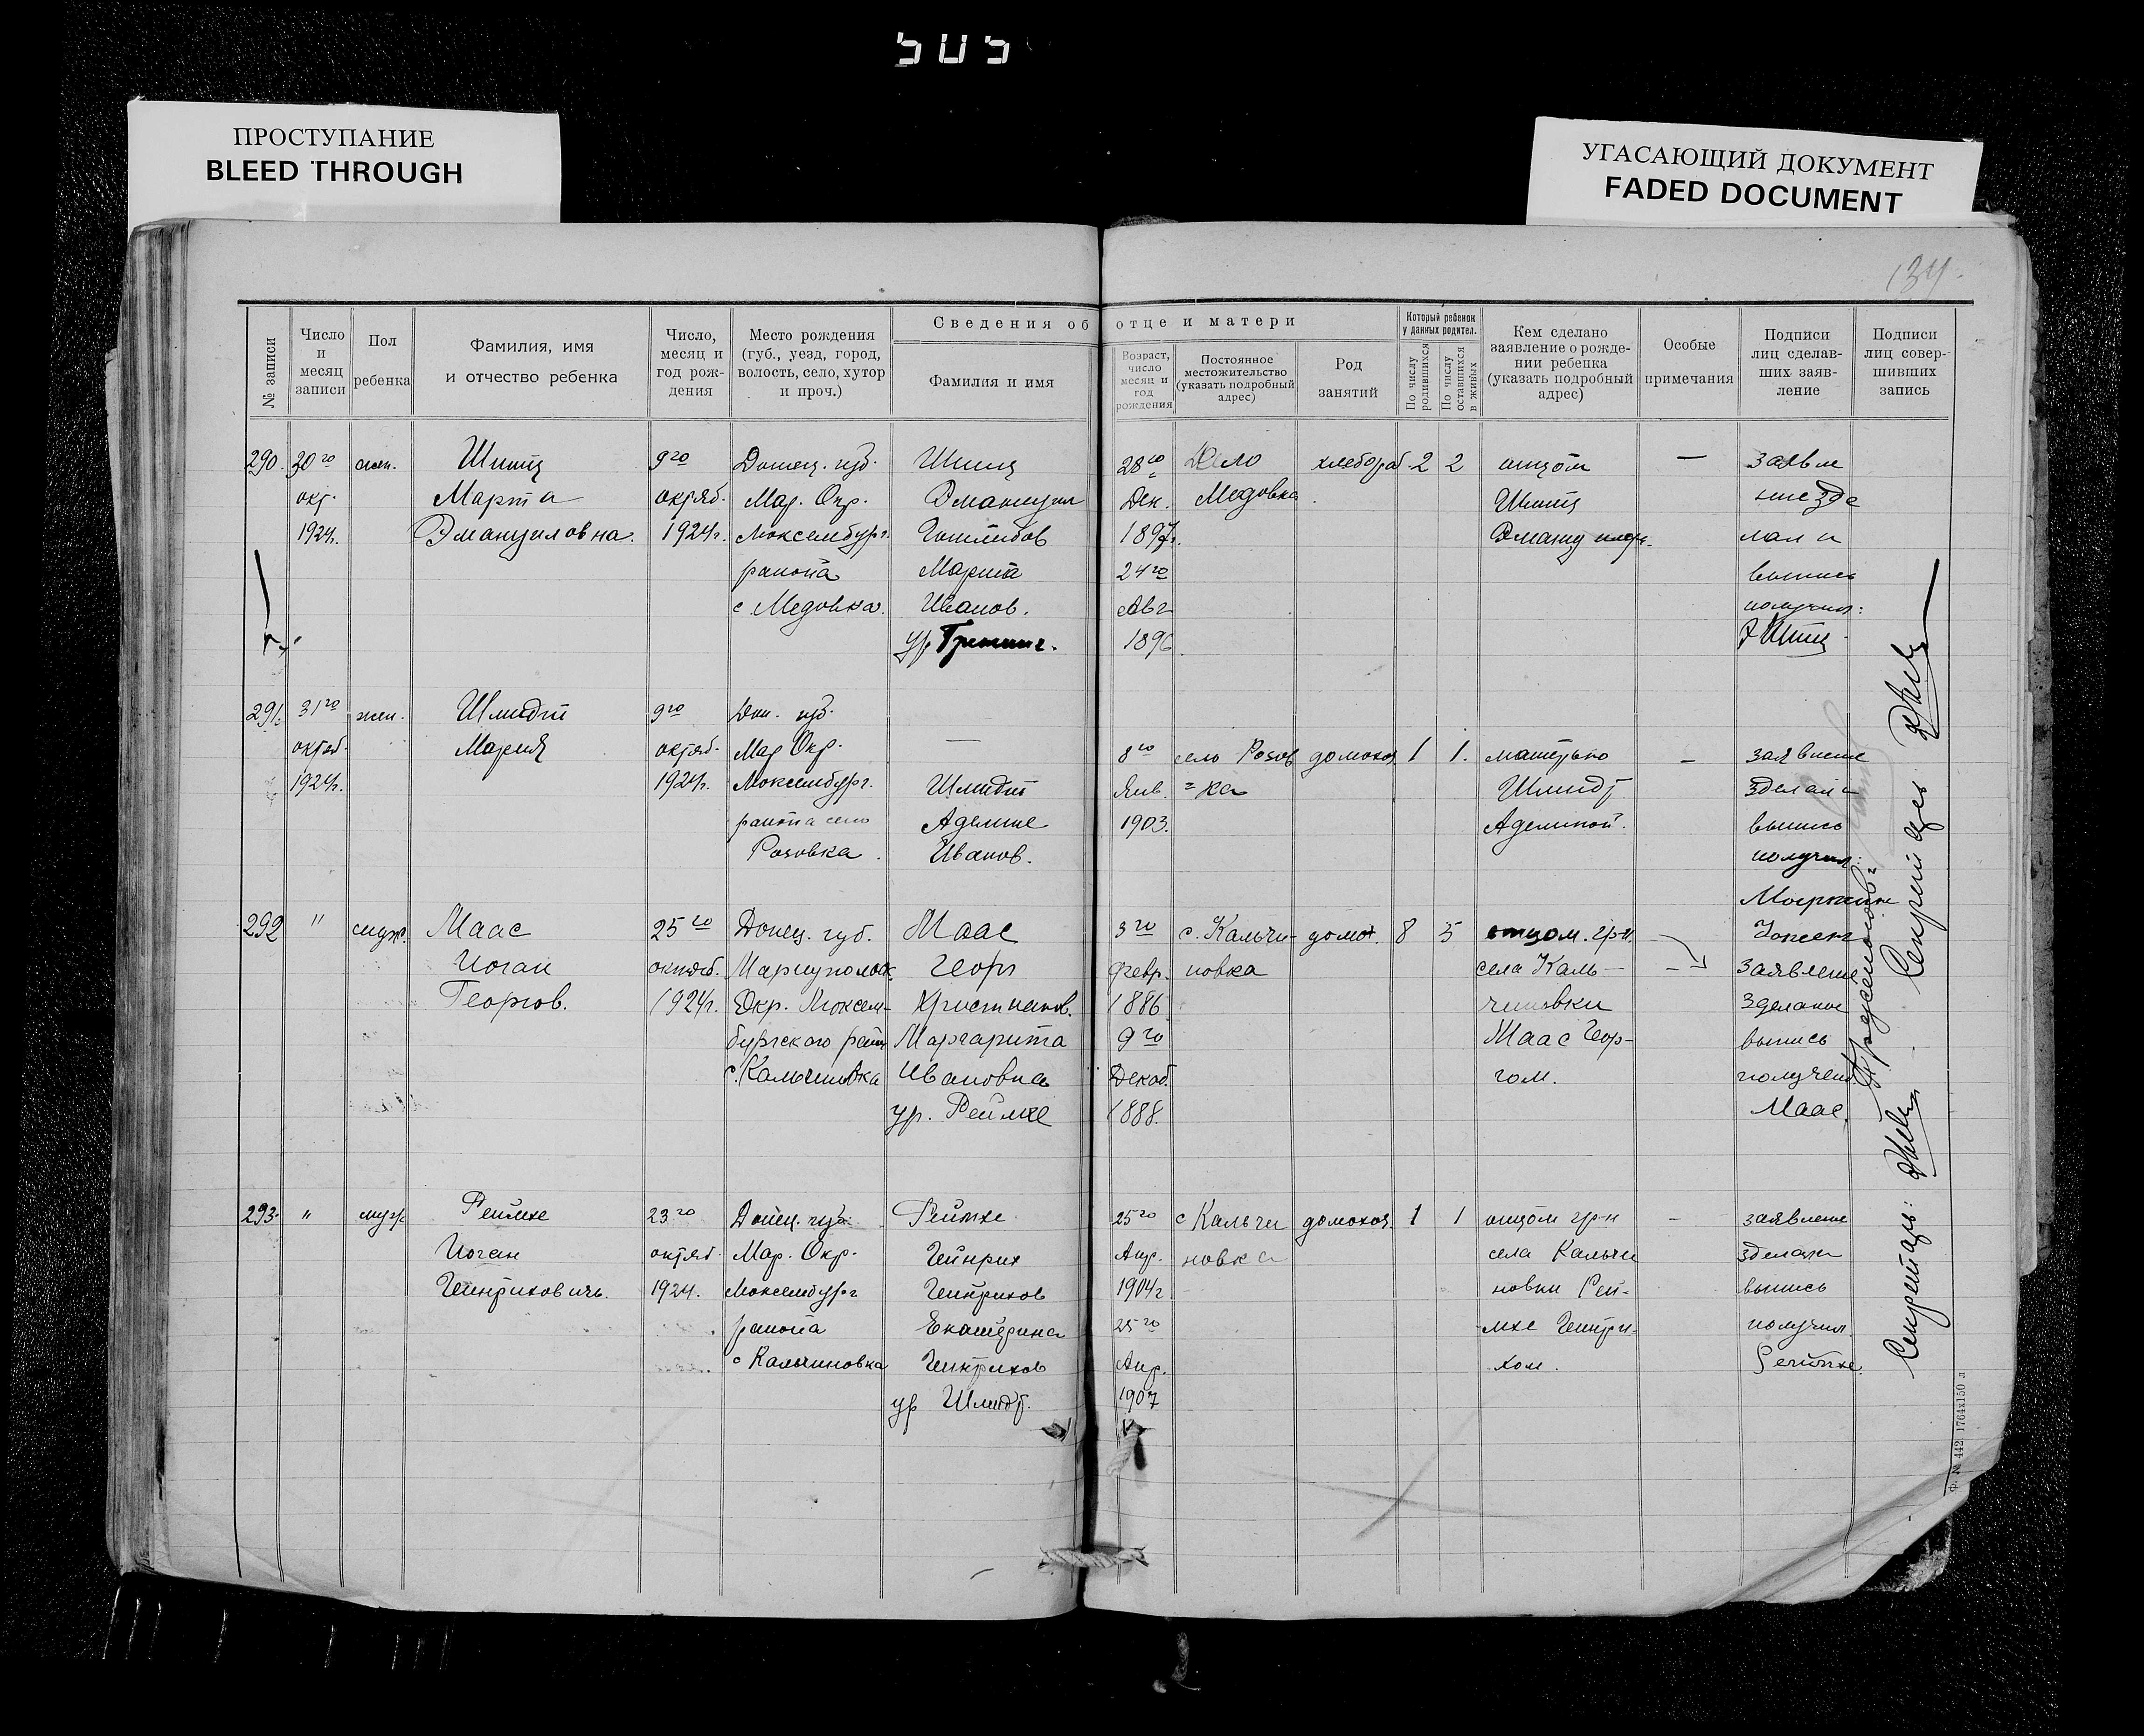 505
ПРОСТУПАНИЕ
BLEED THROUGH
УГАСАЮЩИЙ ДОКУМЕНТ
FADED DOCUMENT
134
№ записи
Число и месяц записи
Пол ребенка
Фамилия, имя и отчество ребенка
Число, месяц и год рождения
Место рождения (губ., уезд, город, волость, село, хутор и проч.)
Сведения об отце и матери
Фамилия и имя
Возраст, число месяц и год рождения
Постоянное местожительство (указать подробный адрес)
Род занятий
Который ребенок у данных родител.
По числу родившихся
По числу оставшихся в живых
Кем сделано заявление о рождении ребенка (указать подробный адрес)
Особые примечания
Подписи лиц сделавших заявление
Подписи лиц совершивших запись
290. 30го жен. Шпиц 9го Донец. губ. Шпиц 28го Село хлебораб. 2 2 отцом — заявле
окт. Марта октяб. Мар. Окр. Эмануил Дек. Медовка Шпиц ние зде
1924г. Эмануиловна. 1924г. Люксембург. Готлибов 1897г. Эмануил лал и
района Марта 24го выпись
с Медовка. Иванов. Авг получил:
ур 1896 Э Шпиц
291. 31го жен. Шмидт 9го Дон. губ.
октяб. Мария октяб. Мар Окр. — 8го село Розов домохоз. 1 1. матерью – заявление
1924г. 1924г. Люксембург. Шмидт Янв. =ка Шмидт зделала
района село Аделине 1903. Аделиной. выпись
Розовка. Иванов. получил:
292 " муж. Маас 25го Донец. губ. Маас 3го с. Кальчи- домох. 8 5 отцом. гр-н.
Иоган октяб. Мариуполск. Георг февр. новка села Каль- – заявление
Георгов. 1924г. Окр. Люксем- Христианов. 1886 чиновки зделано
бургского райн Маргарита 9го Маас Геор- выпись
с. Кальчиновка Ивановна Декаб. гом. получено
ур. Реймхе 1888. Маас.
293. " муж Реймхе 23го Донец. губ. Реймхе 25го с Кальчи домохоз. 1 1 отцом гр-н – заявление
Иоган октяб. Мар. Окр. Гейнрих Апр. новка села Кальчи зделал
Гейнрихович. 1924. Люксембург Гейнрихов 1904г новки Рей- выпись
района Екатерина 25го мхе Гейнри- получил.
с Кальчиновка Гейнрихов Апр. хом. Реймхе.
ур Шмидт. 1907
Секретарь:
Ф. № 442. 1764x150 л